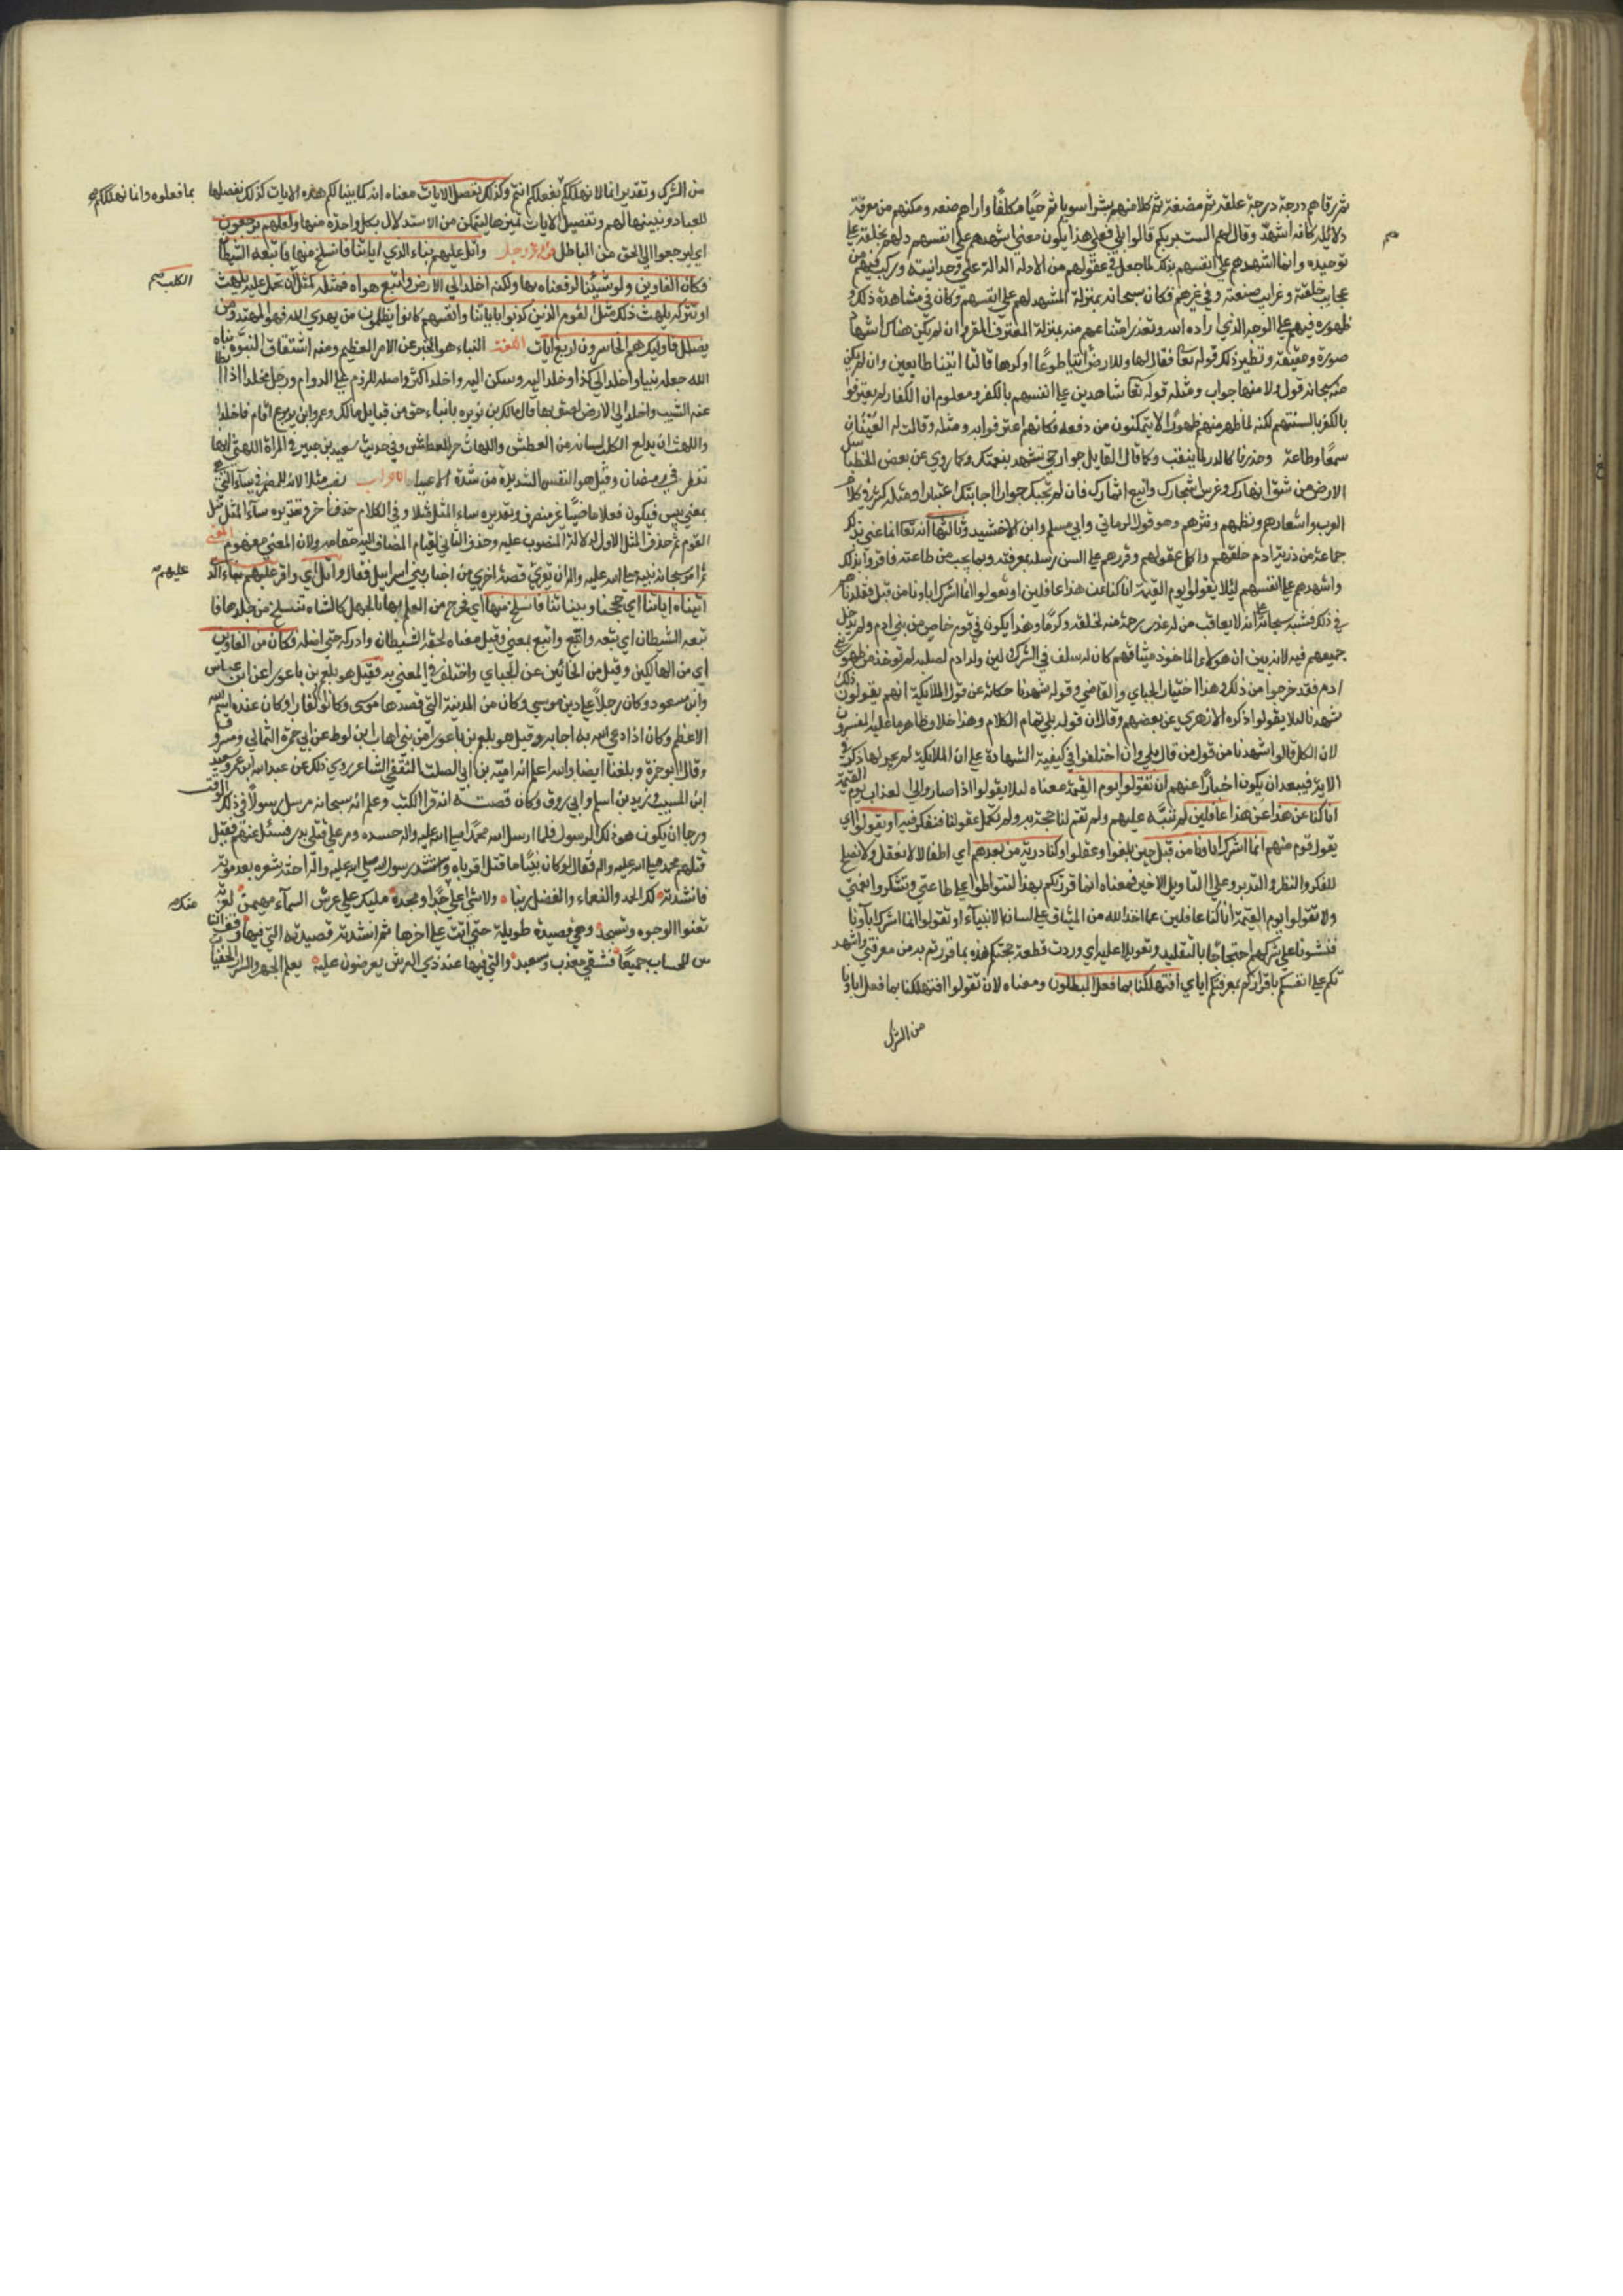 ثم رقاهم درجة درجة علقة ثم مضغة ثم كلا منهم بشرا سويا ثم حيا مكلفا واراهم صنعه ومكنهم من معرفة
دلائله كانه اشهد وقال لهم الست بربكم قالوا بلى فعلى هذا يكون معنى اشهدهم على انفسهم دلهم بخلقه على
توحيده وانما اشهدهم على انفسهم بذلك لما جعل في عقولهم من الادلة الدالة على وحدانيته وركب فيهم من
عجايب خلقته وغرايب صنعته وفي غيرهم فكان سبحانه بمنزلة المشهد لهم على انفسهم وكان في مشاهدة ذلك و
ظهوره فيهم على الوجه الذي اراده الله وتعذر امتناعهم منه بمنزلة المعترف المقر وان لم يكن هناك اشهاد
صورة وحقيقة ونظير ذلك قوله تعا فقال لها وللارض ائتيا طوعا او كرها قالتا اتينا طايعين وان لم يكن
منه سبحانه قول ولا منها جواب ومثله قوله تعا شاهدين على انفسهم بالكفر ومعلوم ان الكفار لم يعترفوا
بالكفر بالسنتهم لكنه لما ظهر منهم ظهورا لا يتمكنون من دفعه فكانهم اعترفوا به ومثله وقالت له العينان
سمعا وطاعة وحدرتا كالدر لما يثقب وكما قال القايل جوارحي تشهد بنعمتك وكما روي عن بعض الخطبا سل
الارض من شق انهارك وغرس اشجارك واينع اثمارك فان لم تجبك حوارا اجابتك اعتبارا ومثله كثير في كلام
العرب واشعارهم ونظمهم ونثرهم وهو قول الرماني وابي مسلم وابن الاخشيد وثالثها انه تعا انما عنى بذلك
جماعة من ذرية ادم خلقهم واكمل عقولهم وقررهم على السن رسله بمعرفته وبما يجب من طاعته فاقروا بذلك
واشهدهم على انفسهم لئلا يقولوا يوم القيمة انا كنا عن هذا غافلين او يقولوا انما اشرك اباونا من قبل فقلدناهم
في ذلك فنبه سبحانه على انه لا يعاقب من له عذر رحمة منه لخلقه وكرما وهذا يكون في قوم خاص من بني ادم ولم يدخل
جميعهم فيه لانه بين ان هولاء الماخوذ ميثاقهم كان لهم سلف في الشرك لان ولد ادم لصلبه لم توخذ من ظهور بني
ادم فقد خرجوا من ذلك وهذا اختيار الجباي والقاضي وقوله شهدنا حكاية عن قول الملايكة انهم يقولون ذلك
شهدنا لئلا يقولوا ذكره الازهري عن بعضهم وقال ان قوله بلى تمام الكلام وهذا خلاف ظاهر ما عليه المفسرون
لان الكل قالوا شهدنا من قول من قال بلى وان اختلفوا في كيفية الشهادة على ان الملائكة لم يجر لها ذكر في
الاية فيبعد ان يكون اخبارا عنهم ان تقولوا يوم القيمة معناه لئلا يقولوا اذا صاروا الى العذاب يوم القيمة
انا كنا عن هذا عن هذا غافلين لم نتنبه عليهم ولم تقم لنا حجة به ولم تكمل عقولنا فنفكر فيه او يقولوا اي
يقول قوم منهم انما اشرك اباونا من قبل حين بلغوا وعقلوا وكنا ذرية من بعدهم اي اطفالا لا نعقل ولا نصلح
للفكر والنظر والتدبر وعلى التاويل الاخير فمعناه انما قررتكم بهذا لتواظبوا على طاعتي وتشكروا نعمتي
ولا تقولوا يوم القيمة انا كنا غافلين عما اخذ الله من الميثاق على لسان الانبياء او تقولوا انما اشرك اباونا
فنشونا على شركهم احتجاجا بالتقليد وتعويلا عليه اي وردت قطعت حجتكم هذه بما قررتم به من معرفتي واشهد
تكم على انفسكم باقراركم بمعرفتكم اياي افتهلكنا بما فعل المبطلون ومعناه لان تقولوا افتهلكنا بما فعل اباونا
من الشرك
من الشرك وتقديره انا لا نهلككم بفعلكم انتم وكذلك نفصل الايات معناه انه كما بينا لكم هذه الايات كذلك نفصلها
بما فعلوه وانا نهلككم صح
للعباد ونبينها لهم وتفصيل الايات تمييزها ليتمكن من الاستدلال بكل واحدة منها ولعلهم يرجعون
اي ليرجعوا الى الحق من الباطل قوله عز وجل واتل عليهم نباء الذي اتيناه اياتنا فانسلخ منها فاتبعه الشيطان
فكان الغاوين ولو شئنا لرفعناه بها ولكنه اخلد الى الارض واتبع هواه فمثله كمثل ان تحمل عليه يلهث
الكلب صح
او تتركه يلهث ذلك مثل القوم الذين كذبوا باياتنا وانفسهم كانوا يظلمون من يهدي الله فهو المهتد ومن
يضلل فاوليك هم الخاسرون اربع ايات اللغة النباء هو الخبر عن الامر العظيم ومنه اشتقاق النبوة نباه
الله جعله نبيا واخلد الى كذا وخلد اليه وسكن اليه واخلد اكثر واصله اللزوم على الدوام ورجل مخلد اذا ابطا
عنه الشيب واخلد الى الارض لصق بها قال مالك بن نويره بابناء حي من قبايل مالك وعمرو ابن يربوع اقام فاخلدا
واللهث ان يدلع الكلب لسانه من العطش واللهاث حر العطش وفي حديث سعيد بن جبير في المراة اللهثى انها
تفطر في رمضان وقيل هو النفس الشديدة من شدة الاعياء الاعراب نصب مثلا لانه للمضمر في ساء التي
بمعنى بيس فيكون فعلا ماضيا غير منصرف وتقديره ساء المثل مثلا وفي الكلام حذف اخر وتقديره ساء المثل مثل
القوم ثم حذف المثل الاول لدلالة المنصوب عليه وحذف الثاني لقيام المضاف اليه مقامه ولان المعنى مفهوم المعنى
ثم امر سبحانه نبيه صلى الله عليه واله ان يقرئ قصة اخرى من اخبار بني اسرايل فقال واتل اي واقر عليهم نباء الذ
عليهم صح
اتيناه اياتنا اي حججنا وبيناتنا فانسلخ منها اي فخرج من العلم بها بالجهل كالشاة تنسلخ من جلدها فا
تبعه الشيطان اي تبعه واتبع واتبع بمعنى وقيل معناه لحقه الشيطان وادركه حتى اضله فكان من الغاوين
اي من الهالكين وقيل من الخائبين عن الجباي واختلف في المعني به فقيل هو بلعم بن باعورا عن ابن عباس
وابن مسعود وكان رجلا على دين موسى وكان من المدينة التي قصدها موسى وكانوا كفارا وكان عنده اسم الله
الاعظم وكان اذا دعى الله به اجابه وقيل هو بلعم بن باعورا من بني هاب ابن لوط عن ابي حمزة الثمالي ومسروق
وقال ابو حمزة وبلغنا ايضا والله اعلم انه امية بن ابي الصلت الثقفي الشاعر روي ذلك عن عبد الله ابن عمر وسعيد
ابن المسيب وزيد بن اسلم وابي روق وكان قصته انه قرا الكتب وعلم انه سبحانه مرسل رسولا في ذلك الوقت
ورجا ان يكون هو ذلك الرسول فلما ارسل الله محمدا صلى الله عليه واله حسده ومر على قتلى بدر فسئل عنهم فقيل
قتلهم محمد صلى الله عليه واله فقال لو كان نبيا ما قتل اقرباه واستنشد رسول الله صلى الله عليه واله اخته شعره بعد موته
فانشدته لك الحمد والنعماء والفضل ربنا ولا شي اعلى جدا ومجده مليك على عرش السماء مهيمن لعزته
تعنوا الوجوه وتسجد وهي قصيدة طويلة حتى اتت على اخرها ثم انشدته قصيدته التي فيها وقف الناس
س للحساب جميعا فشقي معذب وسعيد والتي فيها عند ذي العرش يعرضون عليه يعلم الجهر والسرار الخفيا